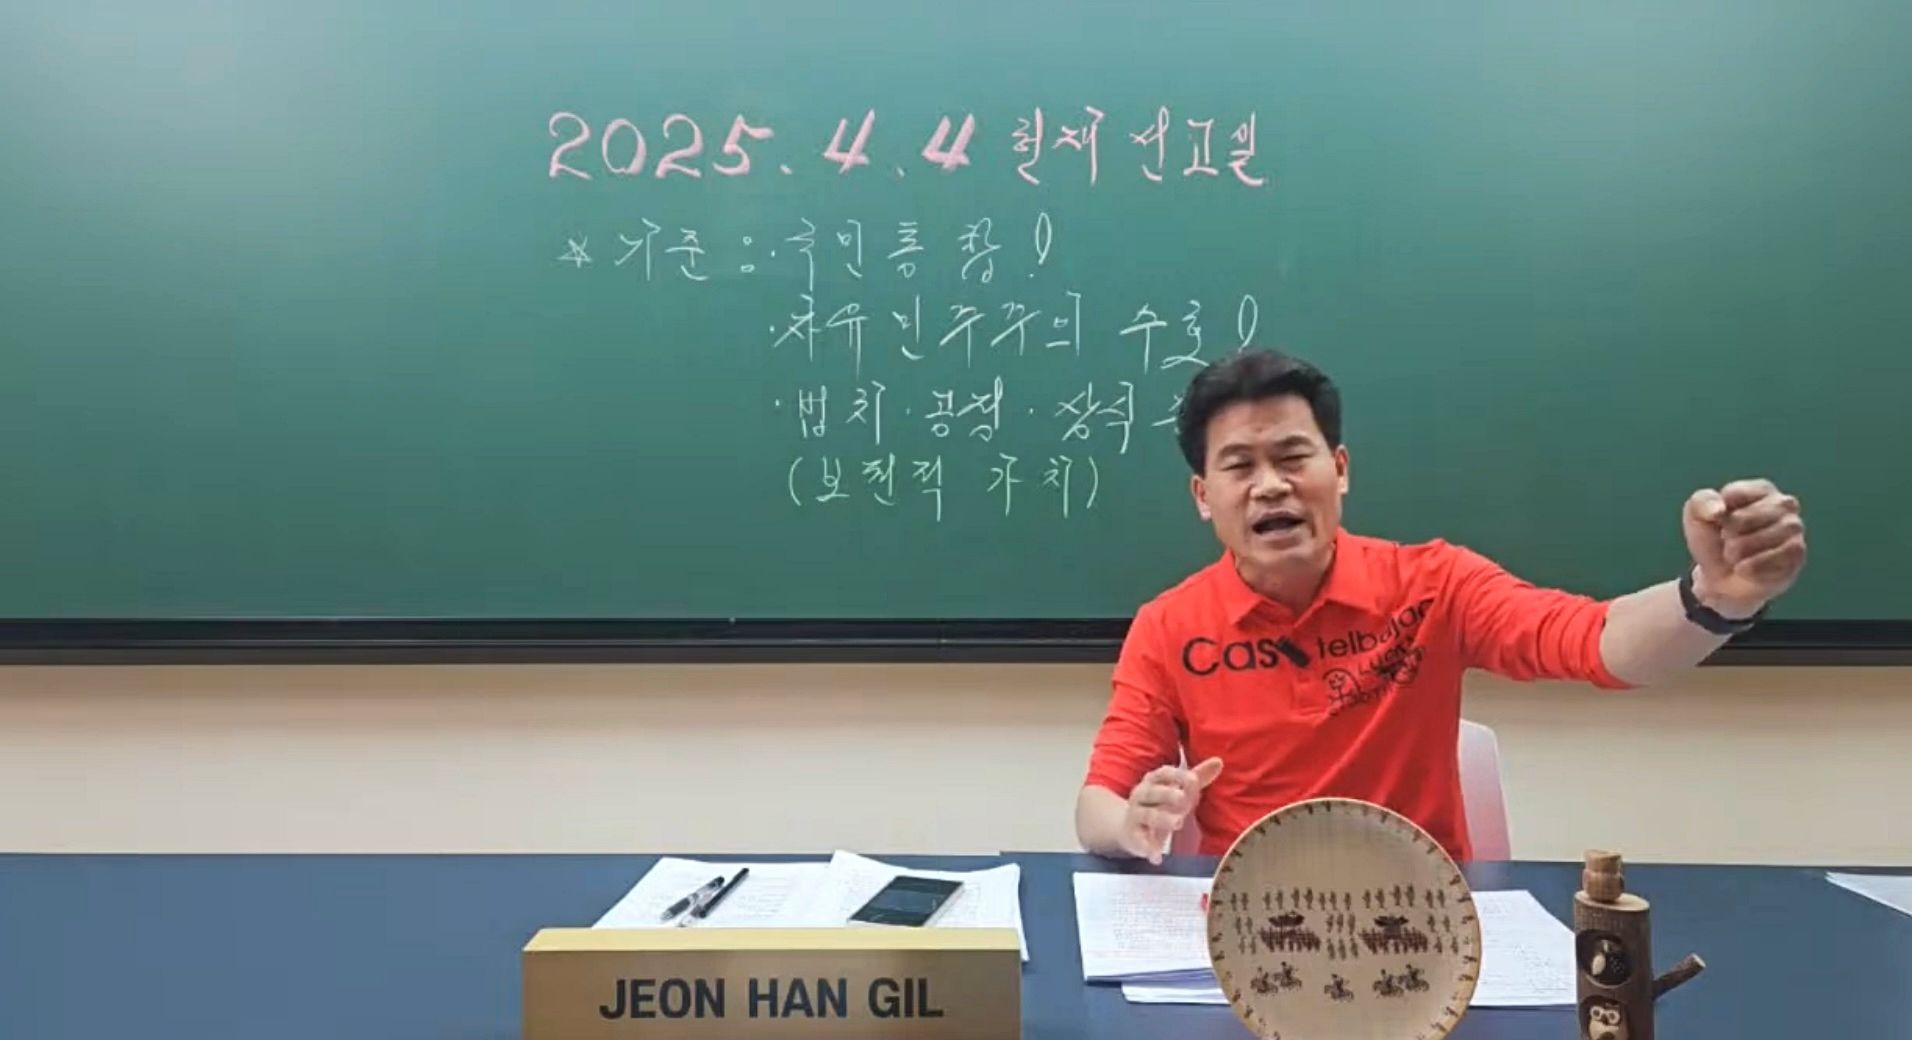 2025.4.4 헌재 선고일
* 기준 : · 국민통합!
· 자유민주주의 수호!
· 법치 · 공정 · 상식
(보편적 가치)
Cas telbajac
JEON HAN GIL